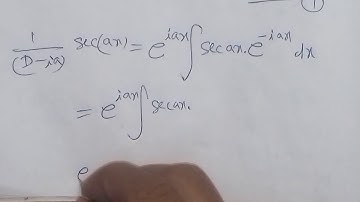 ①
1/(D-ia) sec(ax) = e^{iax} ∫ sec ax. e^{-iax} dx
= e^{iax} ∫ sec ax.
e